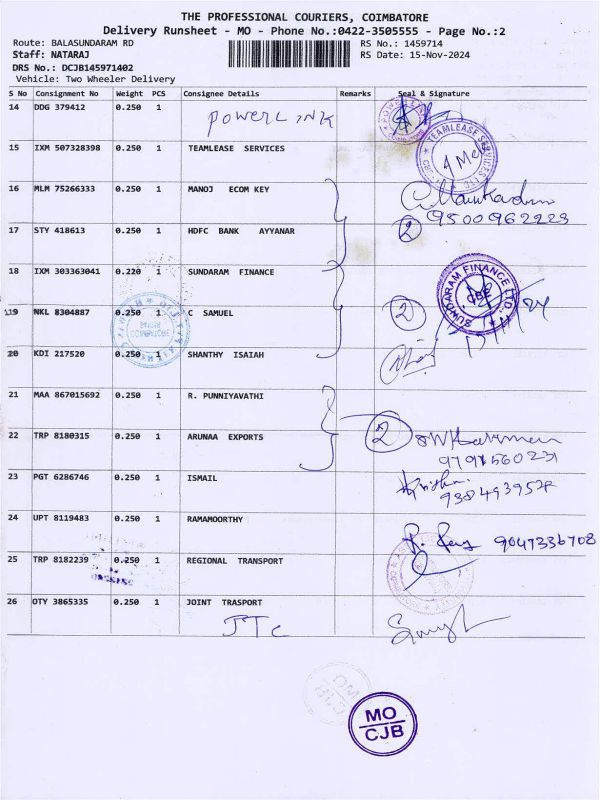 THE PROFESSIONAL COURIERS, COIMBATORE
Delivery Runsheet - MO - Phone No.:0422-3505555 - Page No.:2
Route: BALASUNDARAM RD RS No.: 1459714
Staff: NATARAJ RS Date: 15-Nov-2024
DRS No.: DCJB145971402
Vehicle: Two Wheeler Delivery
S No Consignment No Weight PCS Consignee Details Remarks Seal & Signature
14 DDG 379412 0.250 1 POWERLINK
15 IXM 507328398 0.250 1 TEAMLEASE SERVICES
TEAMLEASE SERVICES
16 MLM 75266333 0.250 1 MANOJ ECOM KEY
9500962223
17 STY 418613 0.250 1 HDFC BANK AYYANAR 2
18 IXM 303363041 0.220 1 SUNDARAM FINANCE
SUNDARAM FINANCE LTD. CBE
19 NKL 8304887 0.250 1 C SAMUEL 2
20 KDI 217520 0.250 1 SHANTHY ISAIAH
21 MAA 867015692 0.250 1 R. PUNNIYAVATHI
22 TRP 8180315 0.250 1 ARUNAA EXPORTS 2
23 PGT 6286746 0.250 1 ISMAIL
24 UPT 8119483 0.250 1 RAMAMOORTHY
9047336708
25 TRP 8182239 0.250 1 REGIONAL TRANSPORT
26 OTY 3865335 0.250 1 JOINT TRASPORT
JTC
MO
CJB